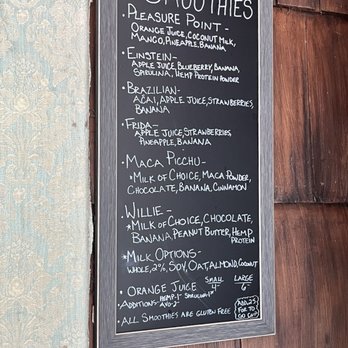 SMOOTHIES
•PLEASURE POINT-
ORANGE JUICE, COCONUT MILK,
MANGO, PINEAPPLE, BANANA
•EINSTEIN-
APPLE JUICE, BLUEBERRY, BANANA
SPIRULINA, HEMP PROTEIN POWDER
•BRAZILIAN-
AÇAI, APPLE JUICE, STRAWBERRIES,
BANANA
•FRIDA-
APPLE JUICE, STRAWBERRIES
PINEAPPLE, BANANA
•MACA PICCHU-
*MILK OF CHOICE, MACA POWDER,
CHOCOLATE, BANANA, CINNAMON
•WILLIE-
*MILK OF CHOICE, CHOCOLATE,
BANANA, PEANUT BUTTER, HEMP
PROTEIN
*MILK OPTIONS-
WHOLE, 2%, SOY, OAT, ALMOND, COCONUT
SMALL LARGE
•ORANGE JUICE 4- 6-
•ADDITIONS- HEMP-1- SPIRULINA-1-
AVO-2-
•ALL SMOOTHIES ARE GLUTEN FREE
ADD .25
FOR TO
GO CUP